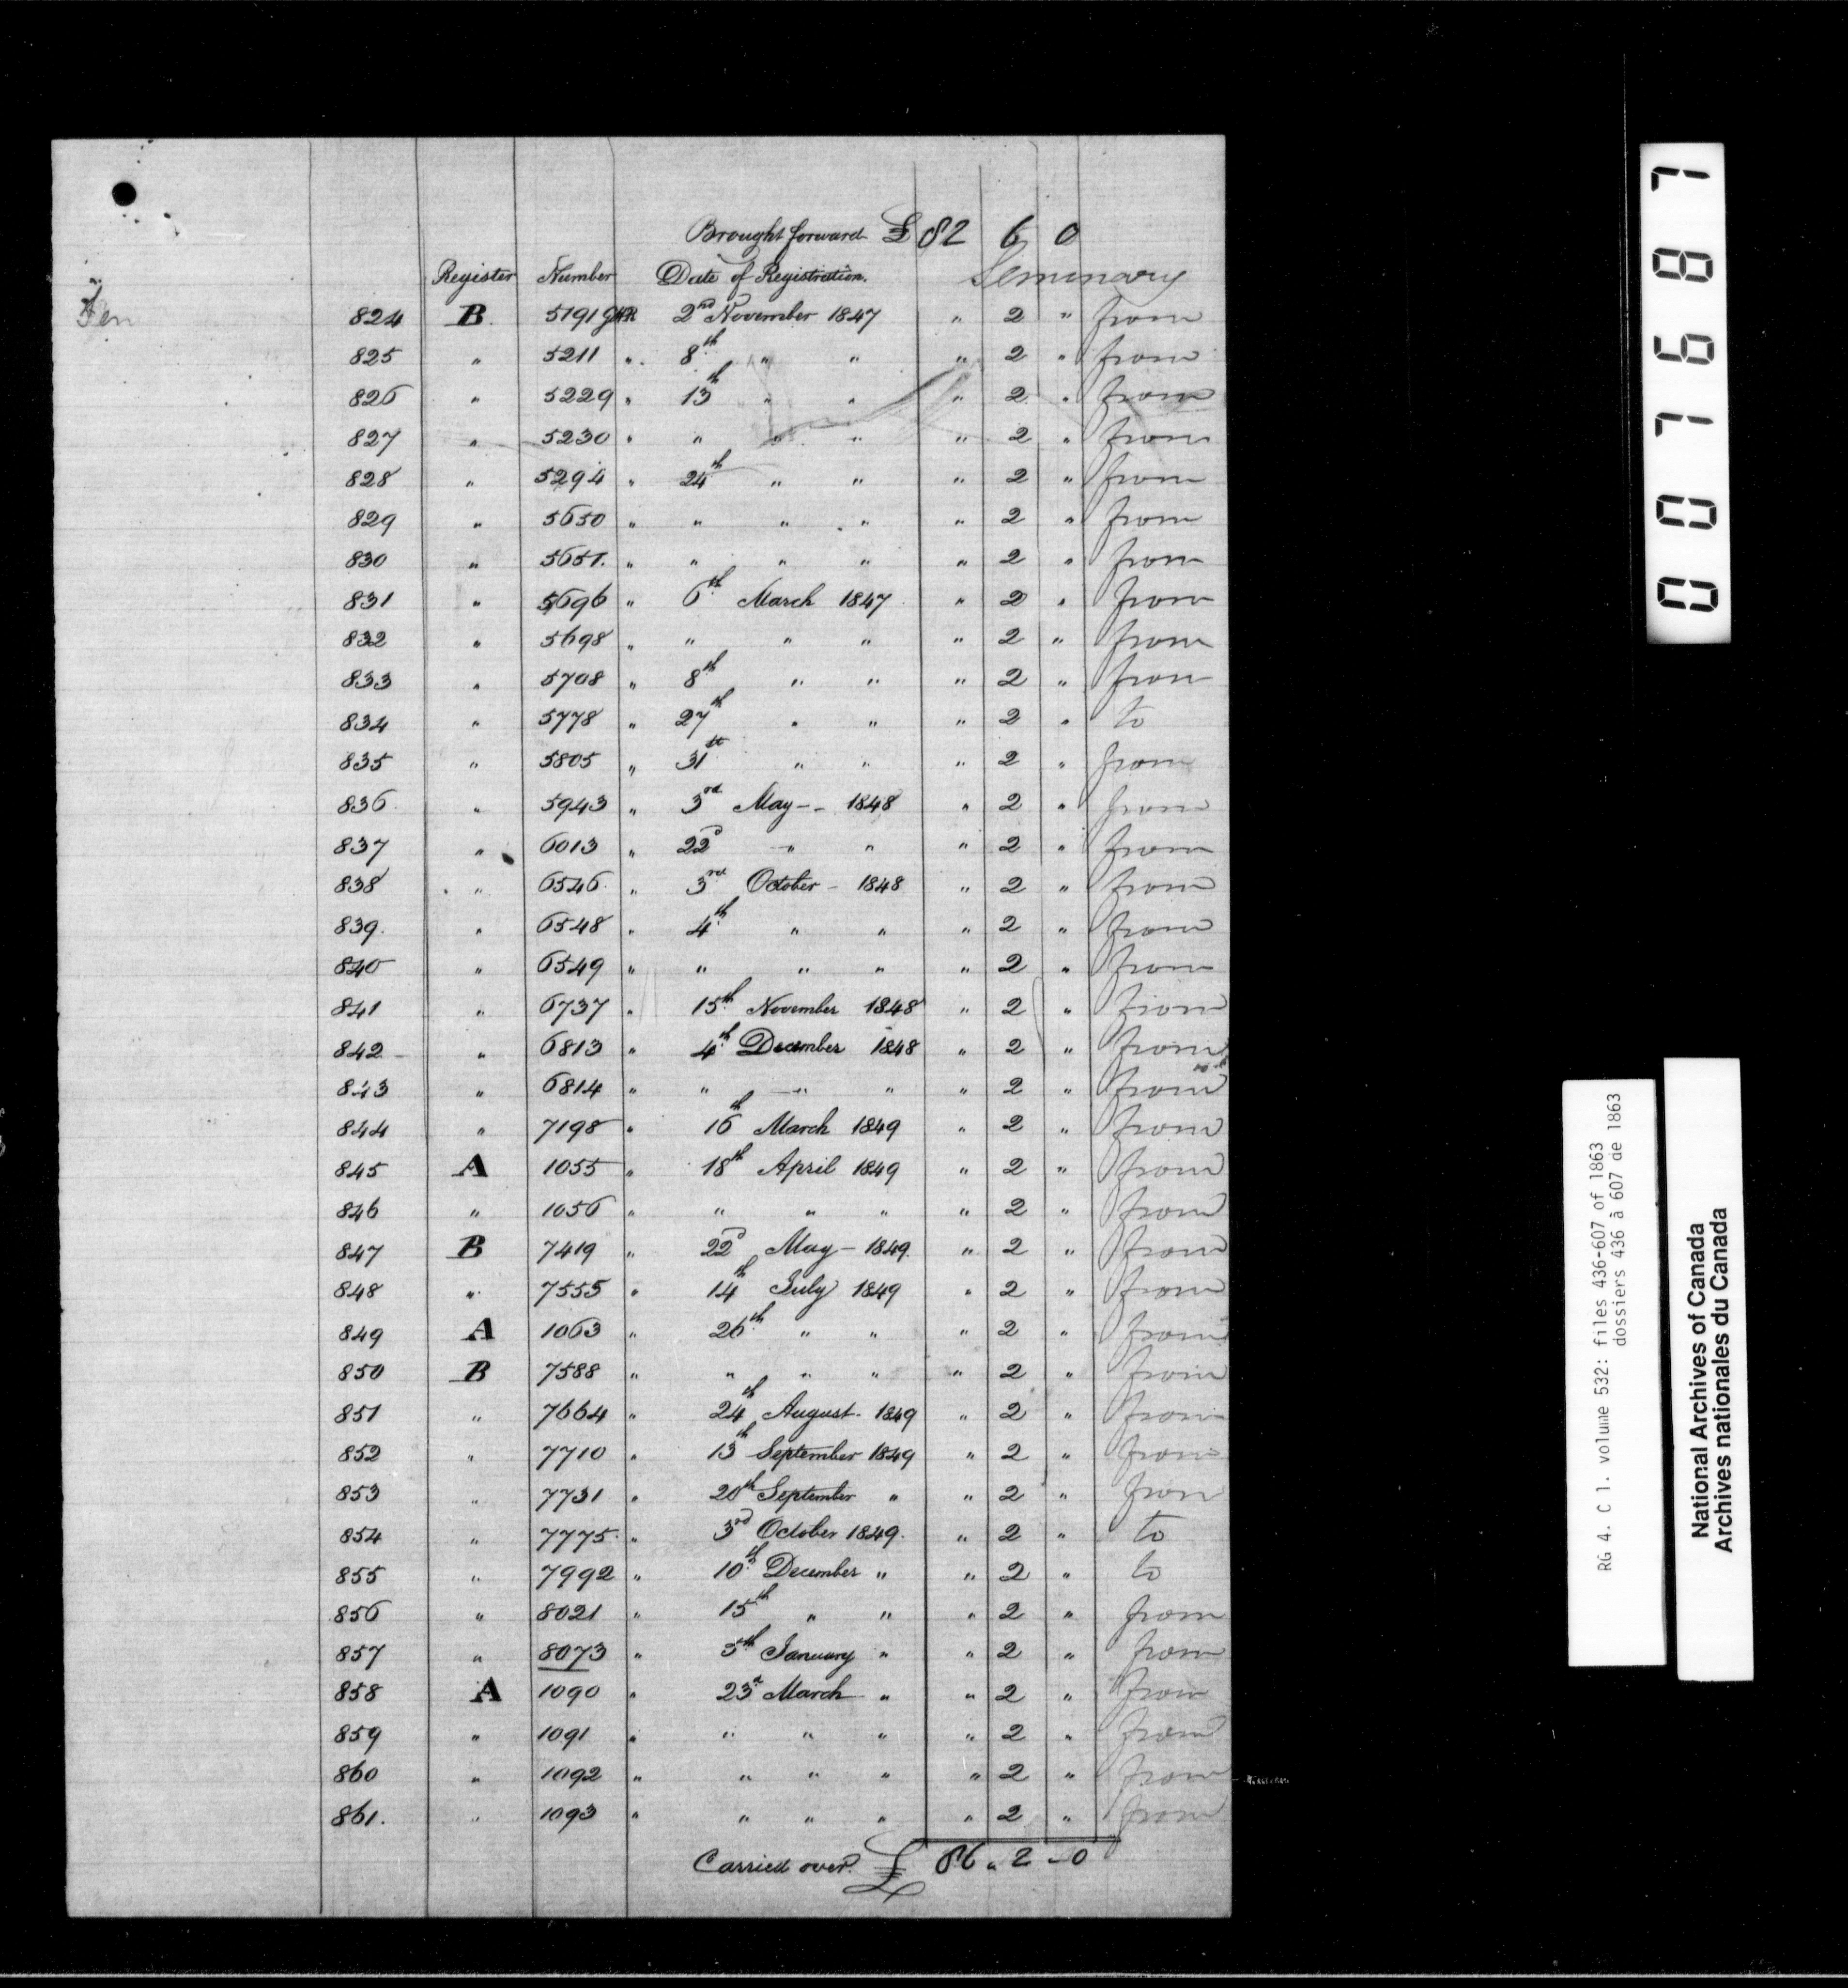 Brought forward £ 82 6 0
Register Number Date of Registration. Seminary
824 B 5191 GHR 2nd November 1847 " 2 " from
825 " 5211 " 8th " " " 2 " from
826 " 5229 " 13th " " " 2 " from
827 " 5230 " " " " " 2 " from
828 " 5294 " 24th " " " 2 " from
829 " 5650 " " " " " 2 " from
830 " 5651. " " " " " 2 " from
831 " 5696 " 6th March 1847 " 2 " from
832 " 5698 " " " " " 2 " from
833 " 5708 " 8th " " " 2 " from
834 " 5778 " 27th " " " 2 " to
835 " 5805 " 31st " " " 2 " from
836 " 5943 " 3rd May - - 1848 " 2 " from
837 " 6013 " 22d " " " 2 " from
838 " 6546 " 3rd October - 1848 " 2 " from
839. " 6548 " 4th " " " 2 " from
840 " 6549 " " " " " 2 " from
841 " 6737 " 15th November 1848 " 2 " from
842 " 6813 " 4th December 1848 " 2 " from
843 " 6814 " " " " " 2 " from
844 " 7198 " 16th March 1849 " 2 " from
845 A 1055 " 18th April 1849 " 2 " from
846 " 1056 " " " " " 2 " from
847 B 7419 " 22d May - 1849. " 2 " from
848 " 7555 " 14th July 1849 " 2 " from
849 A 1063 " 26th " " " 2 " from
850 B 7588 " " " " " 2 " from
851 " 7664 " 24th August - 1849 " 2 " from
852 " 7710 " 13th September 1849 " 2 " from
853 " 7731 " 20th September " " 2 " from
854 " 7775 " 3rd October 1849. " 2 " to
855 " 7992 " 10th December " " 2 " to
856 " 8021 " 15th " " " 2 " from
857 " 8073 " 5th January " " 2 " from
858 A 1090 " 23d March " " 2 " from
859 " 1091 " " " " " 2 " from
860 " 1092 " " " " " 2 " from
861. " 1093 " " " " " 2 " from
Carried over. £ 86 " 2 - 0
007687
RG 4. C 1. volume 532: files 436-607 of 1863
dossiers 436 à 607 de 1863
National Archives of Canada
Archives nationales du Canada